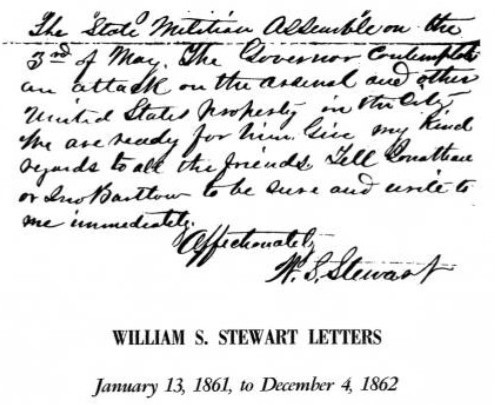 The State Militia Assemble on the
3rd of May. The Governor Contemplates
an attack on the arsenal and other
United States property in the City,
We are ready for him. Give my kind
regards to all the friends. Tell Jonathan
or Jno Barttow to be sure and write to
me immediately.
Affectionately
W. S. Stewart
WILLIAM S. STEWART LETTERS
January 13, 1861, to December 4, 1862